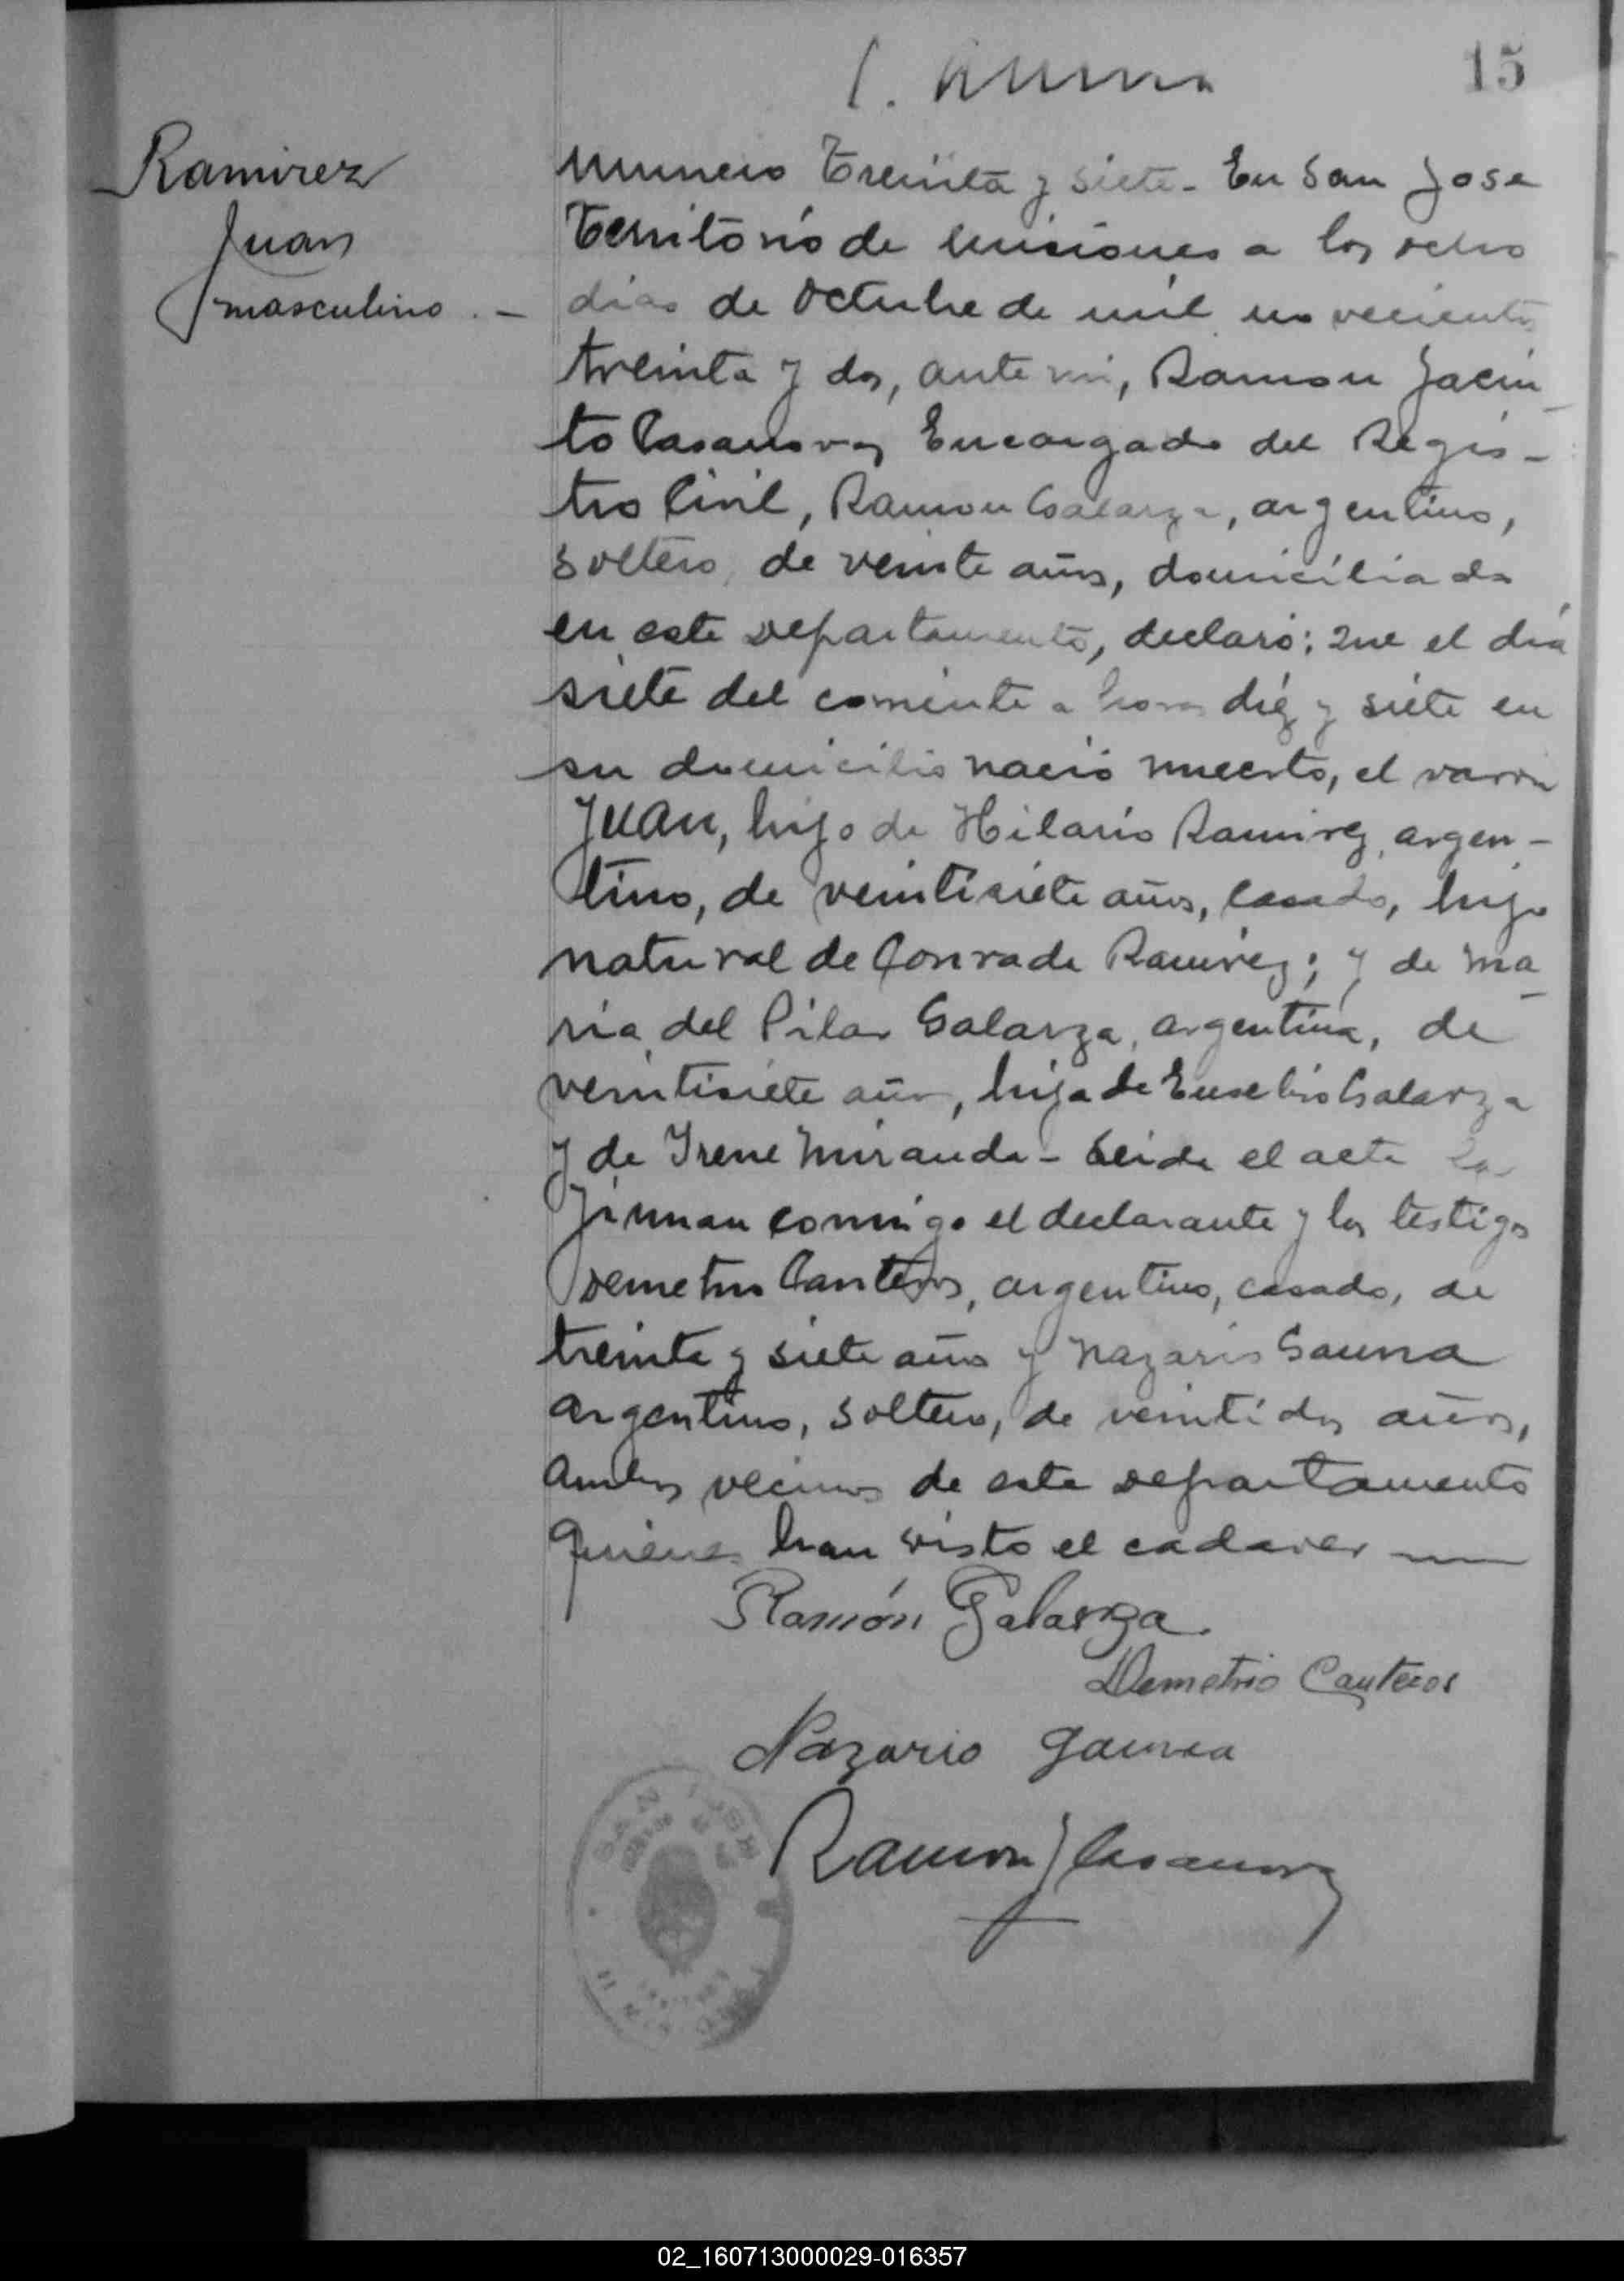 15
Ramirez
Juan
masculino . -
Numero Treinta y siete - En San Jose
Territorio de Misiones a los ocho
dias de Octubre de mil novecientos
treinta y dos, ante mi, Ramon Jacin
to Casanova, Encargado del Regis-
tro Civil, Ramon Galarza, argentino,
soltero, de veinte años, domiciliado
en este departamento, declaró: Que el día
siete del corriente a horas diez y siete en
su domicilio nació muerto, el varon
JUAN, hijo de Hilario Ramirez, argen-
tino, de veintisiete años, casado, hijo
natural de Conrada Ramirez; y de Ma
ria del Pilar Galarza, argentina, de
veintisiete años, hija de Eusebio Galarza
y de Irene Miranda - Leida el acta la
firman conmigo el declarante y los testigos
Demetrio Canteros, argentino, casado, de
treinta y siete años y Nazario Gauna
argentino, soltero, de veintidos años,
ambos vecinos de este departamento
quienes han visto el cadaver
Ramón Galarza.
Demetrio Canteros
Nazario Gauna
Ramon J Casanova
SAN JOSE
02_160713000029-016357